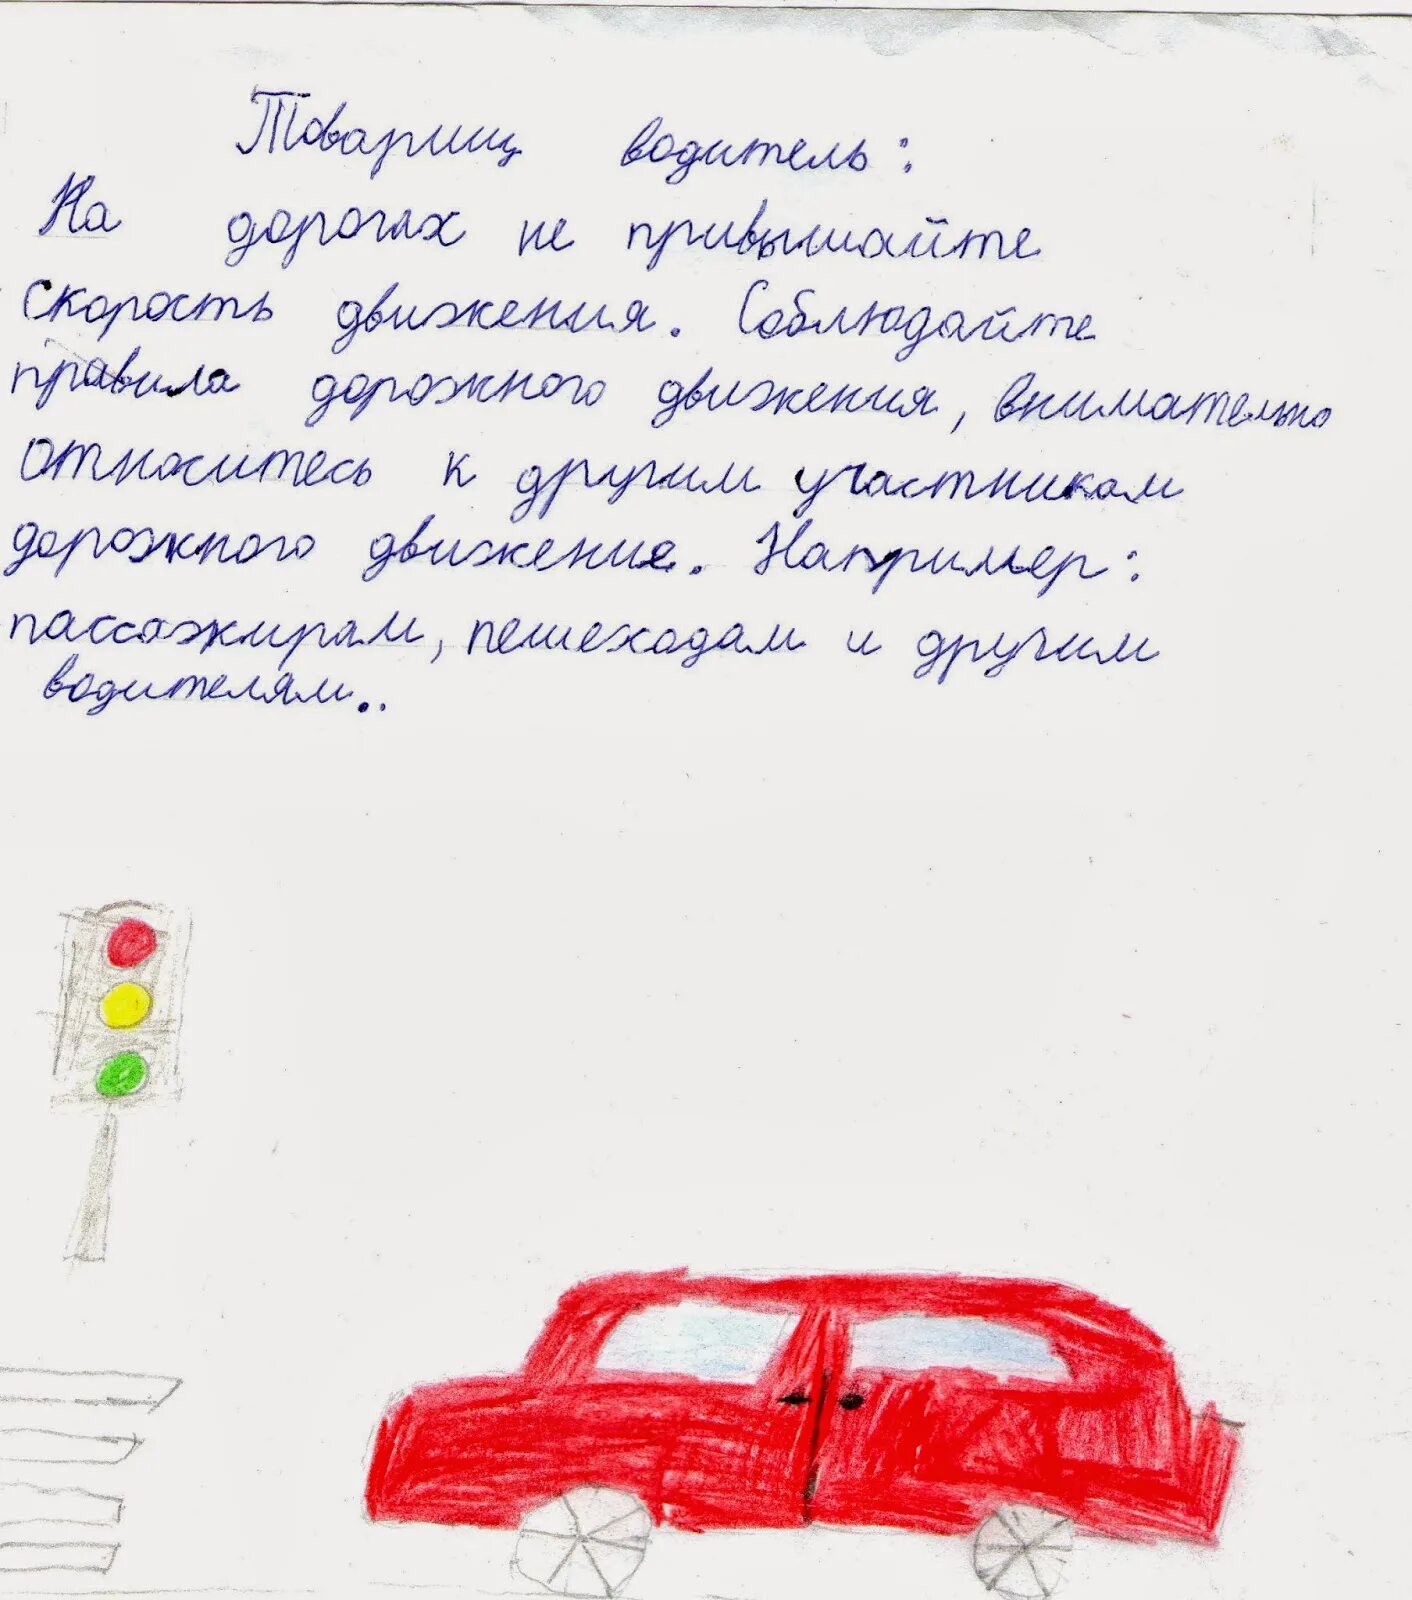 Товарищ водитель:
На дорогах не привышайте
скорость движения. Соблюдайте
правила дорожного движения, внимательно
относитесь к другим участникам
дорожного движение. Например:
пассажирам, пешеходам и другим
водителям..